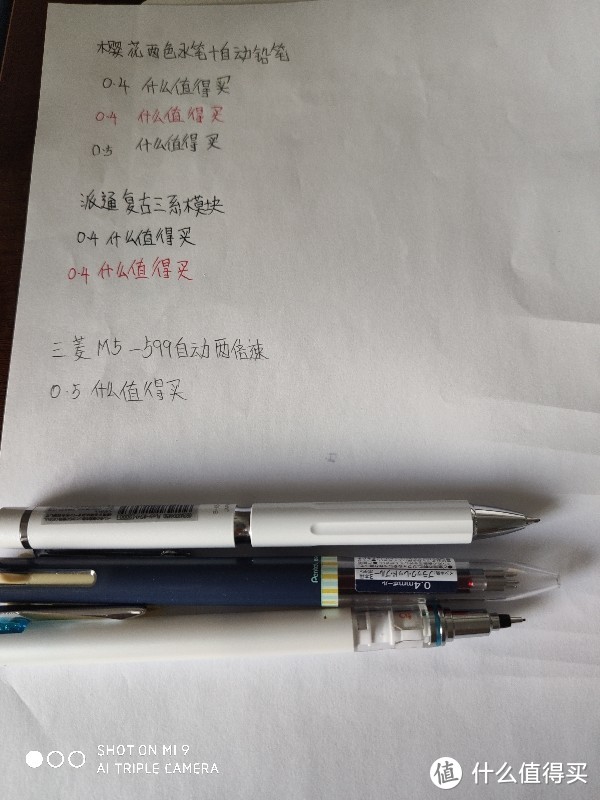 樱花两色水笔+自动铅笔
0.4 什么值得买
0.4 什么值得买
0.5 什么值得买
派通复古三系模块
0.4 什么值得买
0.4 什么值得买
三菱M5-599自动两倍速
0.5 什么值得买
Pentel
0.4mmボール
ブラック,レッド,ブルー
SHOT ON MI 9
AI TRIPLE CAMERA
值 什么值得买